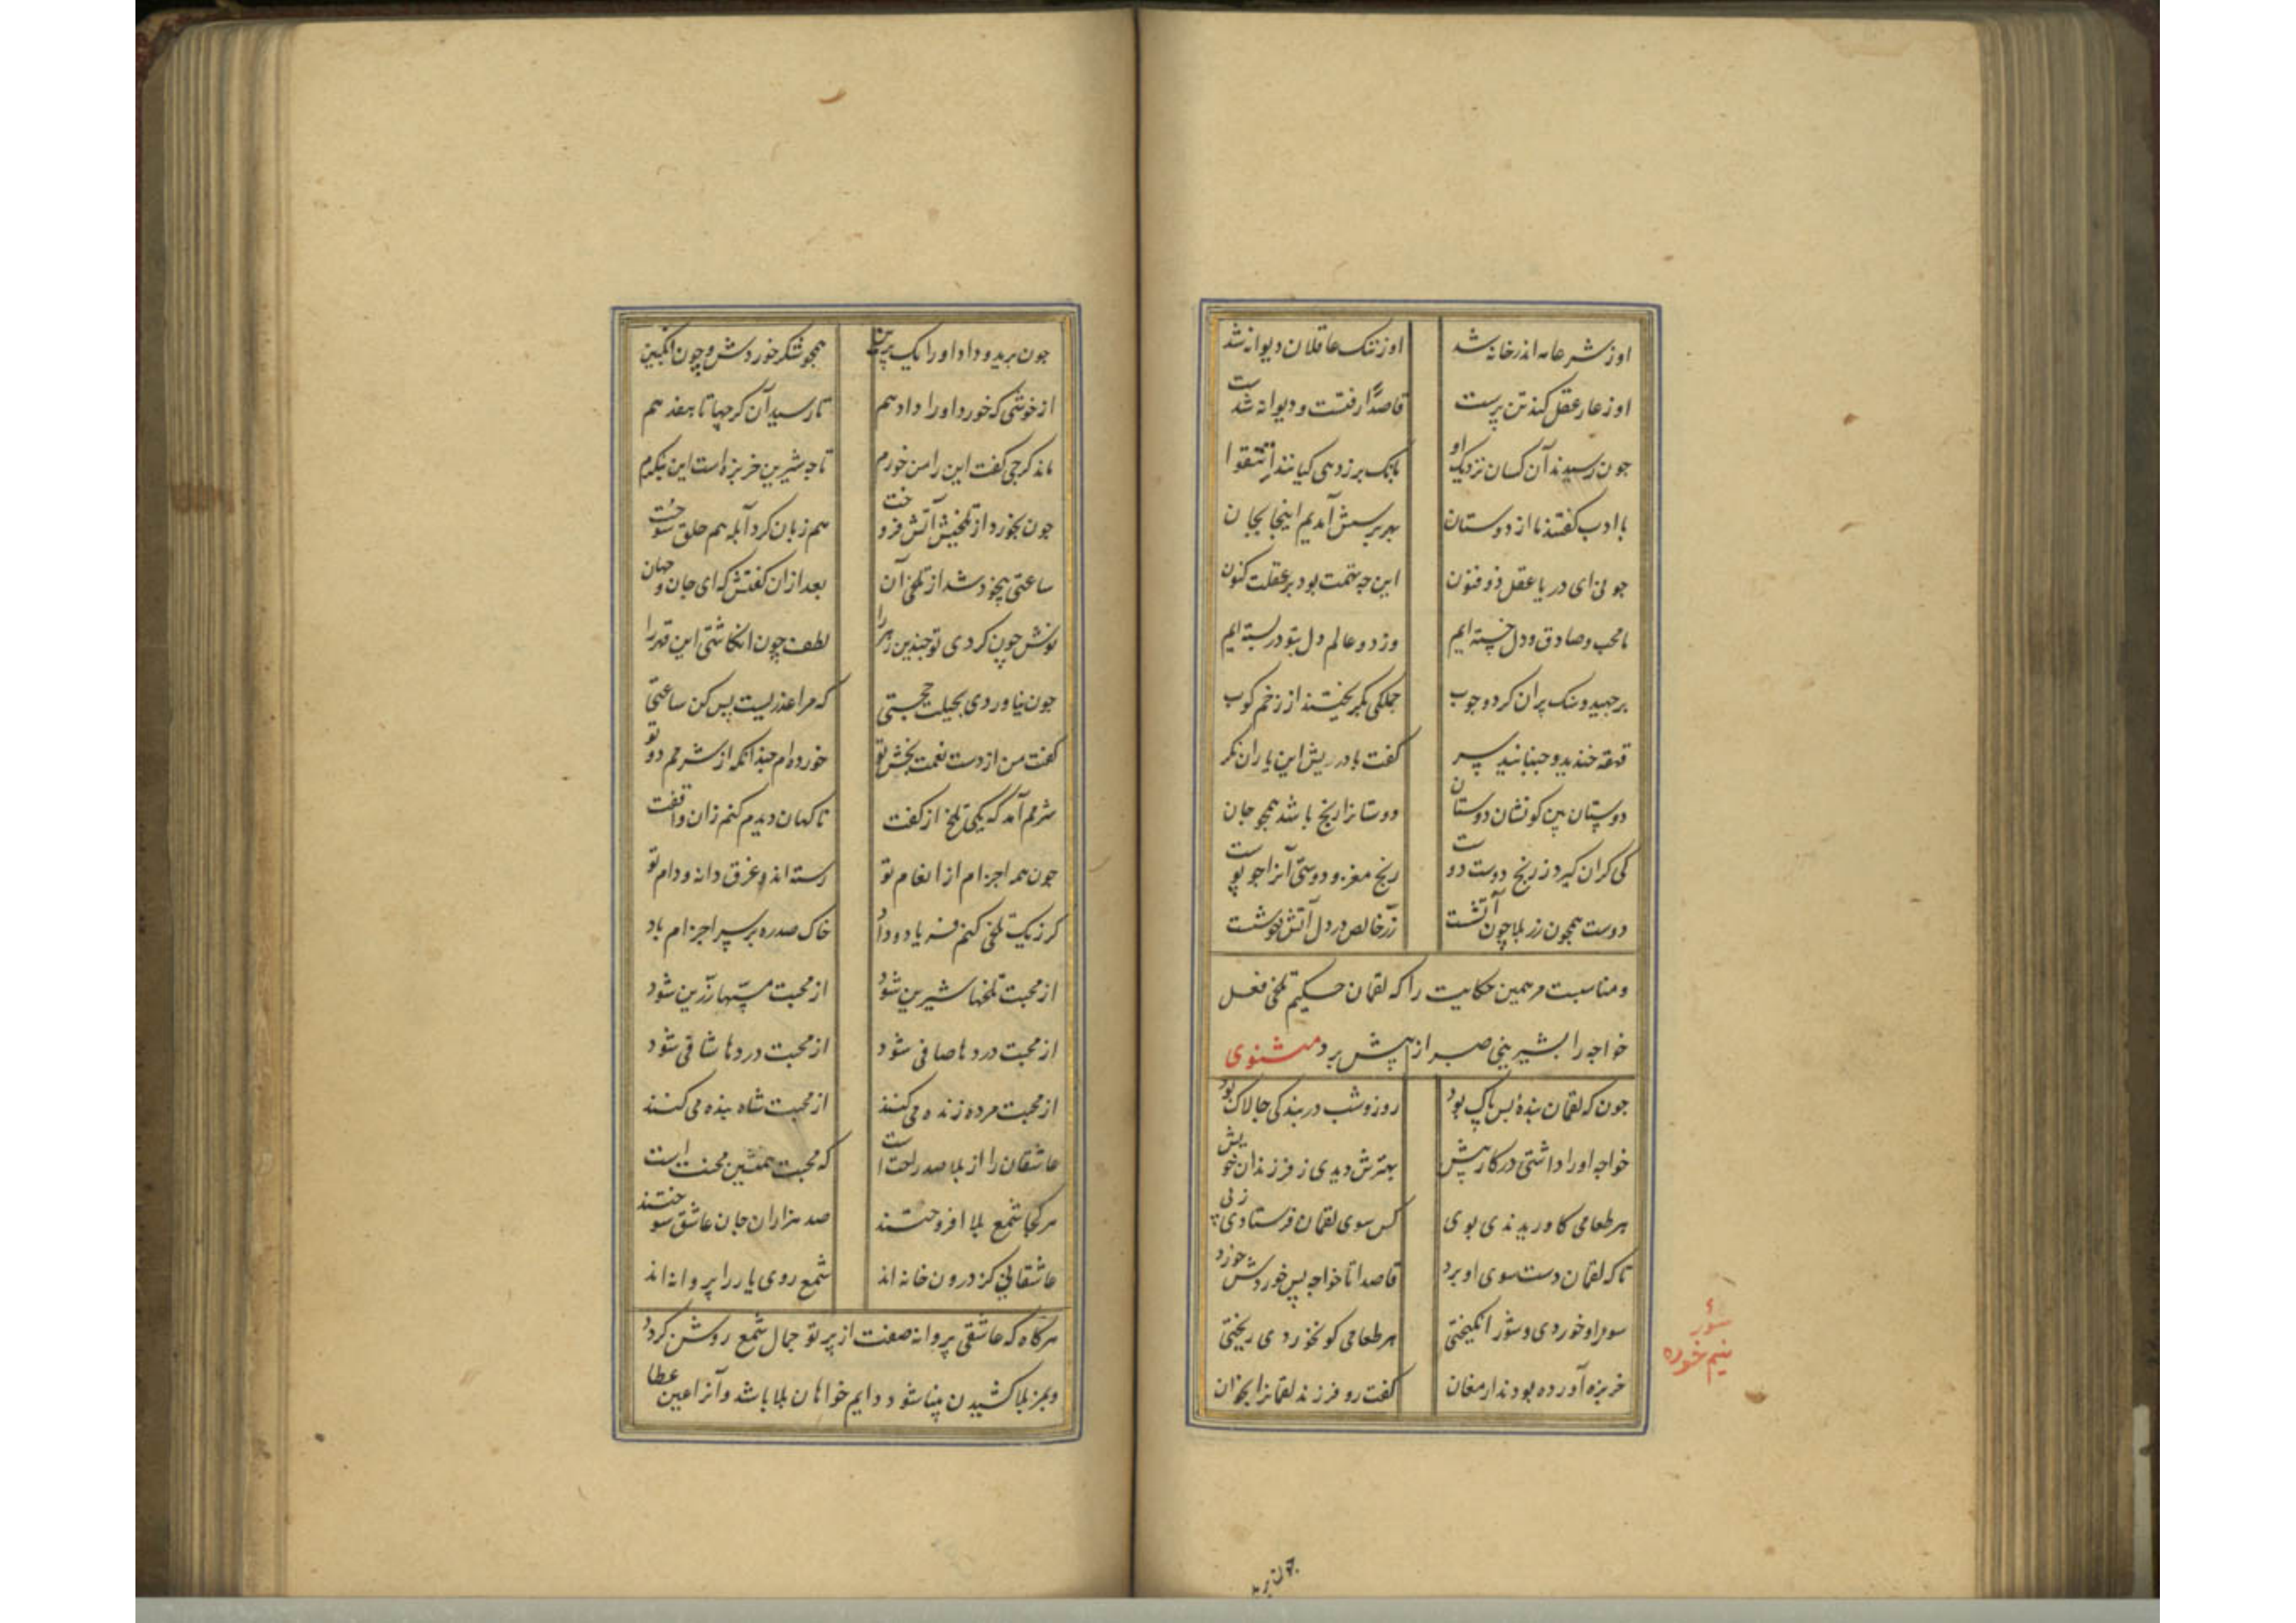 اوز شر عامه اندر خانه شد اوز ننک عاقلان دیوانه شد
اوز عار عقل کند تن پرست قاصدا رفتست و دیوانه شدست
جون رسیدند آن کسان نزدیک او بانک برزد هی کیانند اتقوا
با ادب کفتند ما از دوستان بهر پرسش آمدیم اینجا بجان
جونی ای دریا عقل ذو فنون این چه تهمت بود بر عقلت کنون
ما محب و صادق و دل خسته ایم وز دو عالم دل بتو دربسته ایم
برجهید و سنک پران کرد و جوب جملکی بکریختند از زخم کوب
قهقه خندید و جنبانید سر کفت باد ریش این یاران نکر
دوستان بین کو نشان دوستان دوستانرا رنج باشد همچو جان
کی کران کیرد ز رنج دوست دوست رنج مغز و دوستی آنرا جو پوست
دوست همچون زر بلا چون آتشست زر خالص در دل آتش خوشست
و مناسبت مر همین حکایت را که لقمان حکیم تلخی فعل
خواجه را بشیرینی صبر از پیش برد مثنوی
جون که لقمان بندهٔ بس پاک بود روز و شب در بندکی جالاک بود
خواجه او را داشتی در کار پیش بهترش دیدی ز فرزندان خویش
هر طعامی کاوریدندی بوی کس سوی لقمان فرستادی ز پی
تا که لقمان دست سوی او برد قاصدا تا خواجه پس خوردش خورد
سور او خوردی و شور انکیختی هر طعامی کو نخوردی ریختی
خربزه آورده بودند ارمغان کفت رو فرزند لقمانرا بخوان
سور
نیم خورده
جون برید
جون برید و داد او را یک برین همچو شکر خوردش و چون انکبین
از خوشی که خورد او را داد هم تا رسید آن کرجها تا هفدهم
ماند کرجی کفت این را من خورم تا چه شیرین خربزه است این بنکرم
جون بخورد از تلخیش آتش فروخت هم زبان کرد آبله هم حلق سوخت
ساعتی بیخود شد از تلخی آن بعد از ان کفتش که ای جان و جهان
نوش چون کردی تو جندین زهر را لطف چون انکاشتی این قهر را
جون نیاوردی بحیلت حجتی که مرا عذریست پس کن ساعتی
کفت من از دست نعمت بخش تو خورده ام جندانکه از شرمم دو تو
شرمم آمد که یکی تلخ از کفت ناکهان دیدم کنم زان واقفت
جون همه اجزام از انعام تو رسته اند و غرق دانه و دام تو
کر ز یک تلخی کنم فریاد و داد خاک صد ره بر سر اجزام باد
از محبت تلخها شیرین شود از محبت مسها زرین شود
از محبت دردها صافی شود از محبت دردها شافی شود
از محبت مرده زنده می کنند از محبت شاه بنده می کنند
عاشقان را از بلا صد راحت است که محبت همنشین محنت است
هر کجا شمع بلا افروختند صد هزاران جان عاشق سوختند
عاشقانی کز درون خانه اند شمع روی یار را پروانه اند
هرکاه که عاشقی پروانه صفت از پرتو جمال شمع روشن کردد
و بمز بلا کشیدن بینا شود دایم خواهان بلا باشد و آنرا عین عطا